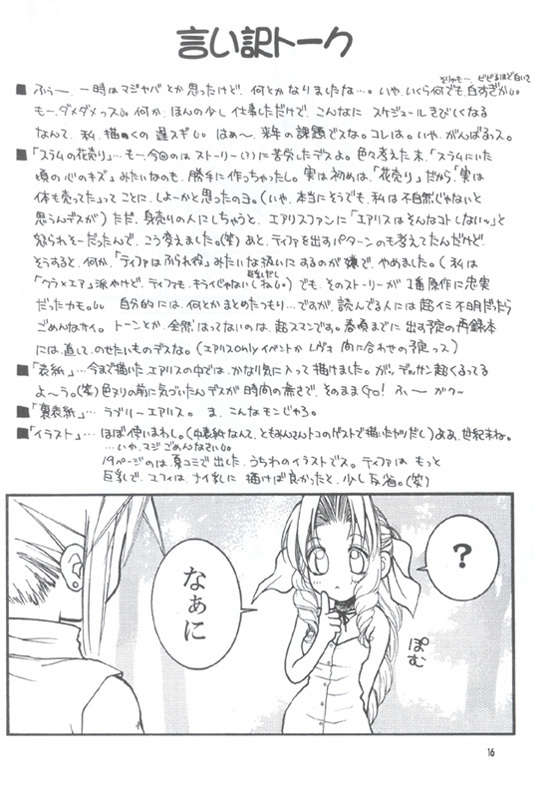 言い訳トーク
そりゃもー、ビビるほど白いて
■ ふぅー、一時はマジヤバとか思ったけど、何とかなりましたな…。いや、いくら何でも白すぎかしら
もー、ダメダメっス。何か、ほんの少し仕事しただけで、こんなに スケジュールきびしくなる
なんて、私、描くの 遅スギ。はぁ〜、来年の課題でスな。コレは。いや、がんばるっス。
■「スラムの花売り」…も一、今回のは ストーリー(?)に苦労したデスよ。色々考えた末、「スラムにいた
頃の心のキズ」みたいなのも、勝手に作っちゃったし。実は初めは、「花売り」だから「実は
体も売ってた」ってことに、しよーかと思ったのヨ。(いや、本当にそうでも、私は不自然じゃないと
思うんデスが)ただ、身売りの人にしちゃうと、エアリスファンに「エアリスはそんなコトしないッ」と
怒られそーだったんで、こう考えました。(笑)あと、ティファを出すパターンのも考えてたんだけど、
そうすると、何か、「ティファはふられ役」みたいな扱いにするのが嫌で、やめました。(私は
「クラ×エア」派やけど、ティファも、そうじゃない)でも、そのストーリーが 1番 原作に忠実
だったカモ。自分的には、何とかまとめたつもり…ですが、読んでる人には 超イミ不明だったら
ごめんなサイ。トーンとか、全然はってないのは、超スマンです。春頃までに 出す予定の再録本
には、直して、のせたいものデスな。(エアリスonlyイベントか レヴォ 間に合わせの予定っス)
■「表紙」…今まで描いたエアリスの中では、かなり気に入って描けました。が、デッサン超くるってる
よ〜う。(笑)色ヌリの前に気づいたんデスが時間の無さで、そのままGO! ふー が
■「裏表紙」… ラブリーエアリス。ま、こんなモンじゃろ。
■「イラスト」… ほぼ使いまわし。(中表紙なんて、ともみんさんトコのゲストで描いたヤツだし)ああ、世紀末ね。
…いや、マジごめんなさい。
19ページのは、夏コミで出した、うちわのイラストでス。ティファは もっと
巨乳で、ユフィは ナイ乳に 描けば良かったと、少し反省。(笑)
?
なぁに
ぽむ
16